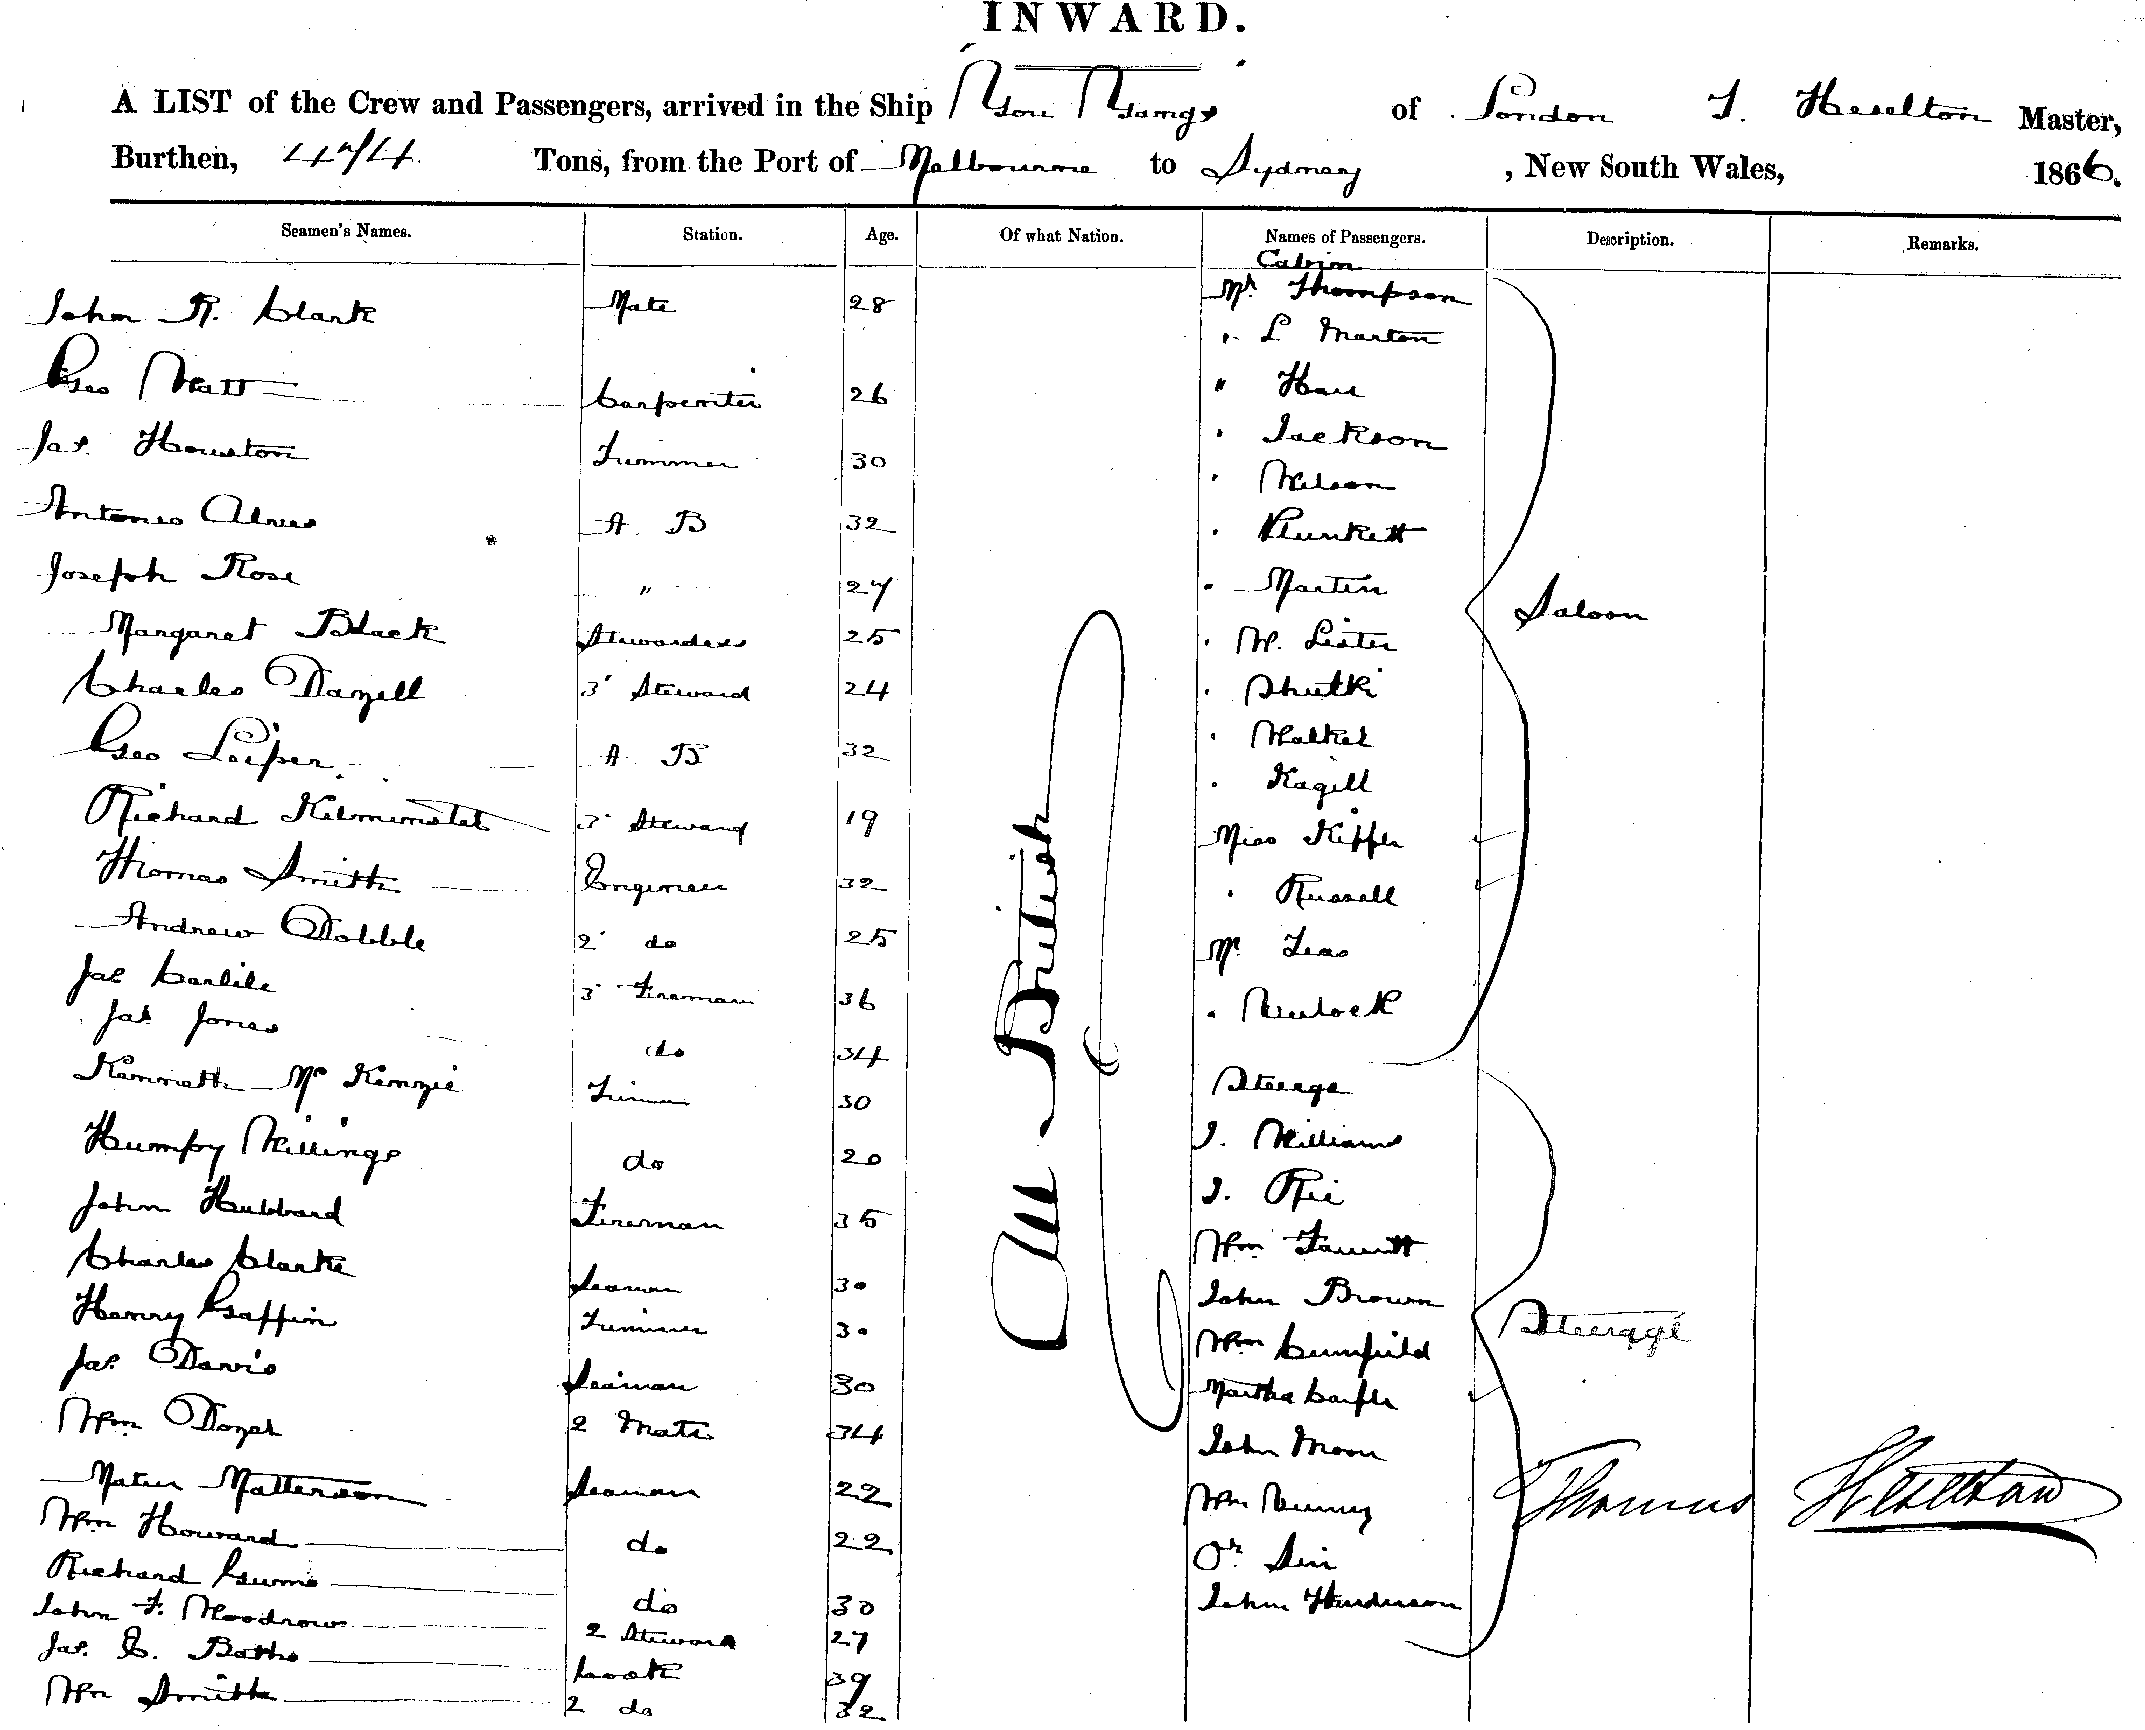 INWARD.
A LIST of the Crew and Passengers, arrived in the Ship of London T. Heselton Master,
Burthen, Tons, from the Port of Melbourne to Sydney, New South Wales, 1866.
Seamen's Names. Station. Age. Of what Nation. Names of Passengers. Description. Remarks.
Cabin
John R. Clark Mate 28 Mr Thompson
" L Marton
Geo Watt Carpenter 26 " Hall
Jas. Houston 30 " Jackson
" Wilson
Antonio Alves A B 32 " Plunkett
Joseph Rose " 27 " Martin
Saloon
Margaret Black Stewardess 25 " W. Lister
Charles Dazell 3' Steward 24 "
Geo Leiper A B 32 " Walker
" Kagill
Richard Kilminster 3' Steward 19 Miss
Thomas Smith Engineer 32 " Russell
Andrew Dobbie 2' do 25 Mr
Jas Carlile 3' Fireman 36 "
Jas Jones do 34
Kenneth McKenzie 30 Steerage
Humpy Willings do 20 J. Williams
John Hubbard Fireman 35 J.
Wm Fawcitt
Charles Clarke Seaman 30 John Brown
Steerage
Henry Gaffin Trimmer 30 Wm
Jas. Davis Seaman 30 Martha
Wm 2 Mate 34 John Moon
Matterson Seaman 22 Wm
Thomas Heselton
Wm Howard do 22
Richard do 30 John Henderson
John F. Woodrow 2 Steward 27
Jas. E. Cook 39
Wm Smith 2 do 32
All British